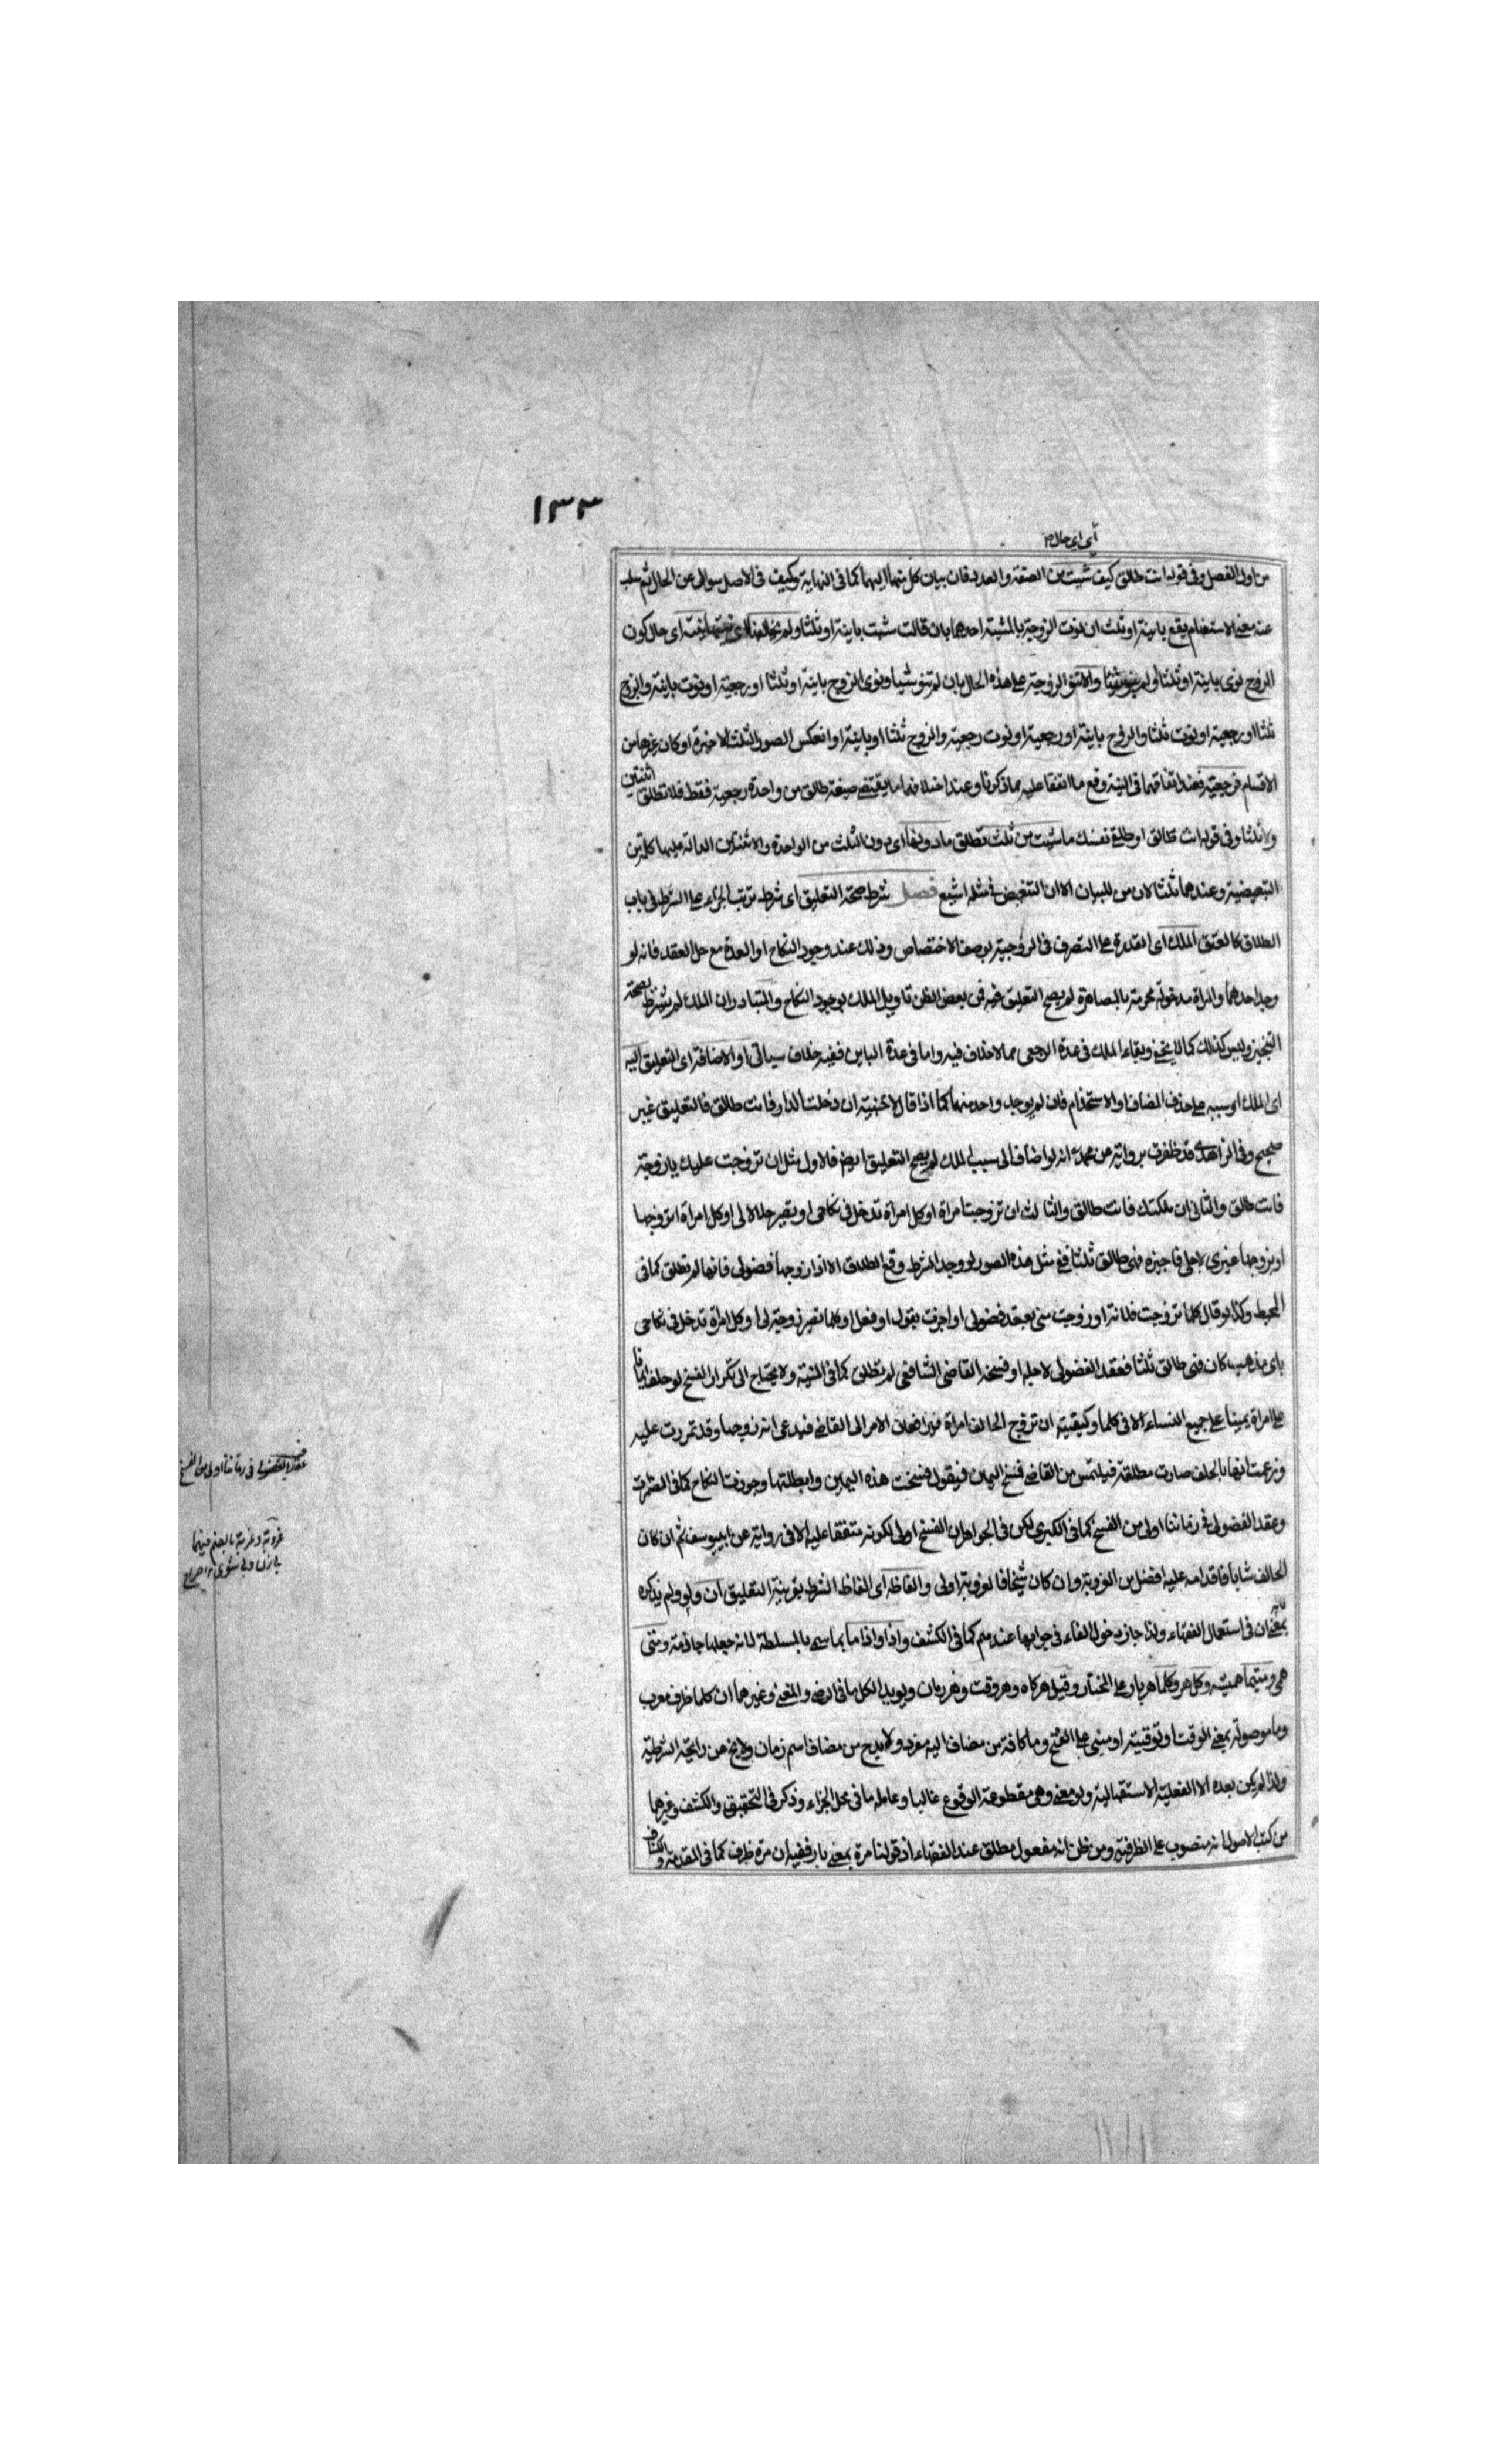 ١٣٣
أي اي حال
من اول الفصل وفي قوله انت طالق كيف شئت من الصفة والعدد فان بيان كل منهما اليهما كما في النهاية وكيف في الاصل سوال عن الحال ثم سلب
عنه معنى الاستفهام يقع باينة او ثلث ان نوت الزوجة بالمشية احدهما بان قالت شئت باينة او ثلثا ولم يخالفها اي نيتها نيته اي حال كون
الزوج نوى باينة او ثلثا او لم ينو شيئا والا تنو الزوجة على هذه الحال بان لم تنو شيا ونوى الزوج باينة او ثلثا او رجعية او نوت باينة والزوج
ثلثا او رجعية او نوت ثلثا والزوج باينة او رجعية او نوت رجعية والزوج ثلثا او باينة او انعكس الصور الثلث الاخيرة او كان غيرها من
الاقسام فرجعية فعند اتفاقهما في النية وقع ما اتفقا عليه مما ذكرنا وعند اختلافهما ما يقتضى صيغة طالق من واحدة رجعية فقط فلا تطلق اثنتين
ولا ثلثا وفي قوله انت طالق او طلقي نفسك ما شئت من ثلث تطلق ما دونها اي دون الثلث من الواحدة والاثنتين الدالة عليهما كلمة من
التبعيضية وعندهما ثلثا لان من للبيان الا ان التبعيض في مثله اشيع فصل شرط صحة التعليق اي شرط ترتب الجزاء على الشرط في باب
الطلاق كالعتق الملك اي القدرة على التصرف في الزوجية بوصف الاختصاص وذلك عند وجود النكاح او العدة مع حل العقد فانه لو
وجد احدهما والمراة مدخولة محرمة بالمصاهرة لم يصح التعليق فمن بعض الظن تاويل الملك بوجود النكاح والمتبادر ان الملك لم يشترط لصحة
التنجيز وليس كذلك كما لا يخفى وبقاء الملك في عدة الرجعي مما لا خلاف فيه واما في عدة الباين ففيه خلاف سياتي او الاضافة اي التعليق اليه
اي الملك او سببه على حذف المضاف او الاستخدام فان لم يوجد واحد منهما كما اذا قال لاجنبية ان دخلت الدار فانت طالق فالتعليق غير
صحيح وفي الزاهدي قد ظفرت برواية عن محمد انه لو اضاف الى سبب الملك لم يصح التعليق ايضا فالاول مثل ان تزوجت عليك يا زوجة
فانت طالق والثاني ان ملكتك فانت طالق والثالث ان تزوجت امراة او كل امراة تدخل في نكاحي او تصير حلالا لي او كل امراة اتزوجها
او يزوجها غيري لاجلي فاجيزه فهي طالق ثلثا ففي مثل هذه الصور لو وجد الشرط وقع الطلاق الا اذا زوجها فضولي فانها لم تطلق كما في
المحيط وكذا لو قال كلما تزوجت فلانة او زوجت مني بعقد فضولي او اجزت بقول او فعل او كلما تصير زوجة لي او كل امراة تدخل في نكاحي
باي مذهب كان فهي طالق ثلثا فعقد الفضولي لاجله او فسخه القاضي الشافعي لم تطلق كما في المنية ولا يحتاج الى تكرار الفسخ لو حلف ايمانا
على امراة يمينا على جميع النساء الا في كلما وكيفيته ان تزوج الحالف امراة فيرافعان الامر الى القاضي فيدعى انه زوجها وقد تمردت عليه
وزعمت انها بالحلف صارت مطلقة فيلتمس من القاضي فسخ اليمين فيقول فسخت هذه اليمين وابطلتها وجوزت النكاح كما في المضمرات
وعقد الفضولي في زماننا اولى من الفسخ كما في الكبرى لكن في الجواهر ان الفسخ اولى لكونه متفقا عليه الا في رواية عن ابي يوسف ثم ان كان
الحالف شابا فاقدامه عليه افضل من العزوبة وان كان شيخا فالعزوبة اولى والفاظه اي الفاظ الشرط بقرينة التعليق ان ولو ولم يذكره لانه
بمعنى ان في استعمال الفقهاء ولذا جاز دخول الفاء في جوابها عندهم كما في الكشف واذا واذا ما بما سمى بالمسلطة لانه جعلها جازمة ومتى
هى ومتيما هميشه وكل هر وكلما هربار على المختار وقيل هركاه وهر وقت وهر زمان ويويد الكل ما في الرضي والمغني وغيرهما ان كلما ظرف معرب
وما موصولة بمعنى الوقت او توقيتية او مبني على الفتح وما كافة من مضاف اليه مفرد ولا بد ح من مضاف اسم زمان ولا يخ عن رائحة الشرطية
ولذا لم يكن بعده الا الفعلية الاستقبالية ولو معنى وهي مقطوعة الوقوع غالبا وعامله ما في محل الجزاء وذكر في التحقيق والكشف وغيرهما
من كتب الاصول انه منصوب على الظرفية ومن ظن انه مفعول مطلق عند الفقهاء اذ قولنا مرة بمعنى بار ففيه ان مرة ظرف كما في المقدمة والكشاف
عقد الفضولي في زماننا اولى من الفسخ
عزوبة وعزبة بالضم فيهما
بي زن وبي شوي صراح